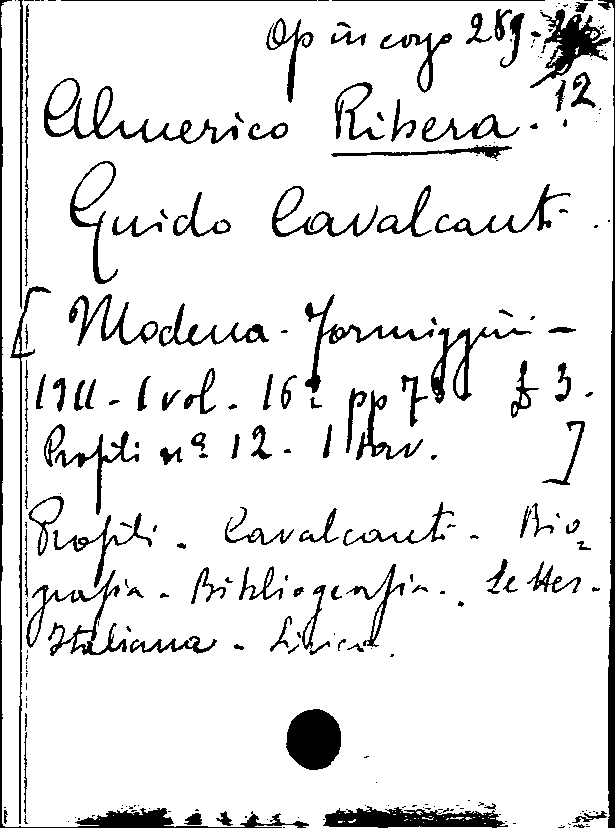 Op in corso 289-
12
Almerico Ribera.
Guido Cavalcanti.
[Modena - Formiggini -
1911 - 1 vol. 16º pp 78 £ 3.
Profili nº 12. 1 tav. ]
Profili. Cavalcanti. Bio=
grafia. Bibliografia. Letter.
Italiana. Lirica.